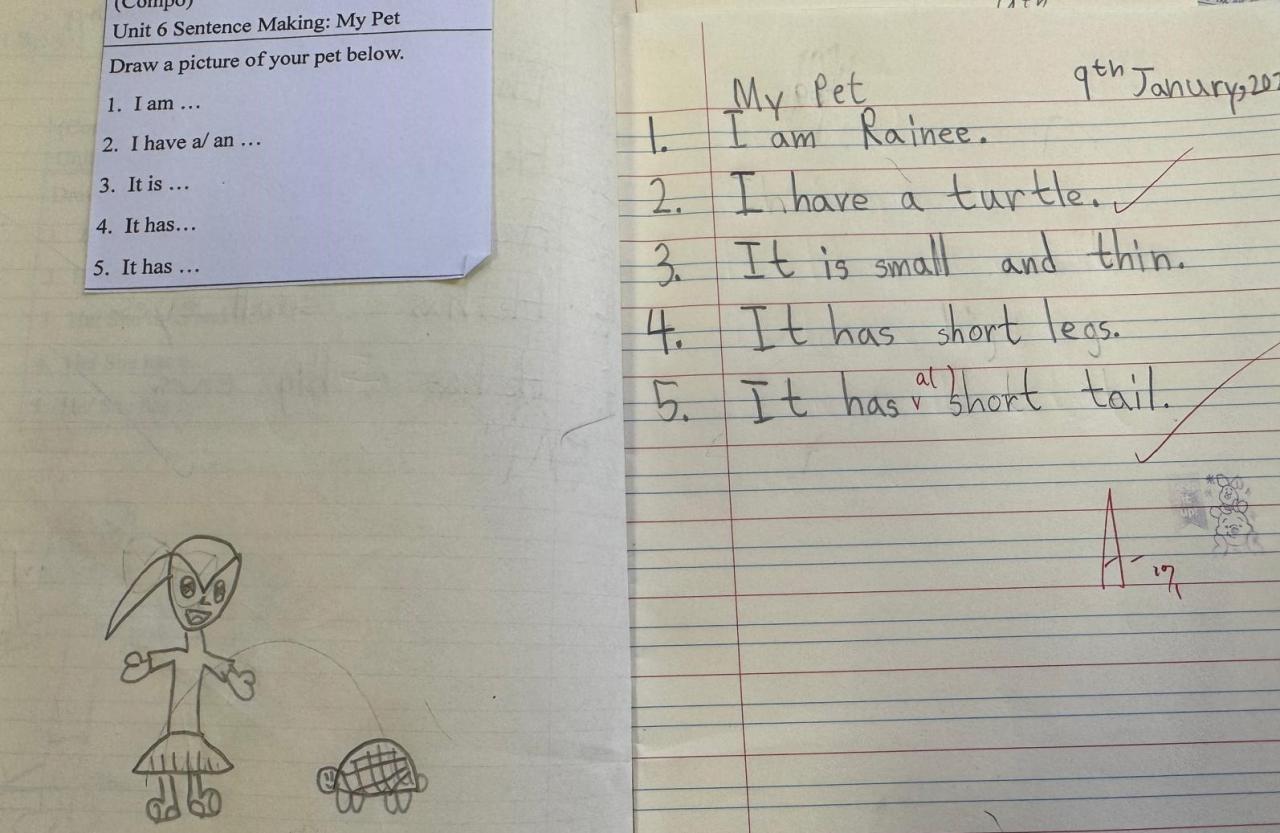 (Compo)
Unit 6 Sentence Making: My Pet
Draw a picture of your pet below.
1. I am ...
2. I have a/ an ...
3. It is ...
4. It has...
5. It has ...
My Pet
9th Janury,
1. I am Rainee.
2. I have a turtle.
3. It is small and thin.
4. It has short legs.
5. It has a short tail.
A-